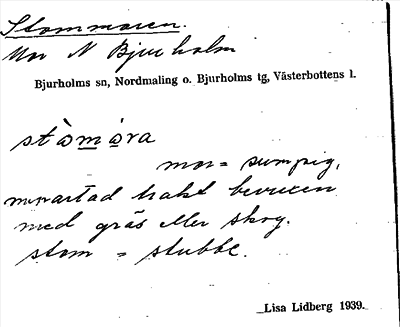 Stommoren.
Mor N Bjurholm
Bjurholms sn, Nordmaling o. Bjurholms tg, Västerbottens l.
stòmo̱ra
mor = sumpig,
myrartad trakt bevuxen
med gräs eller skog.
stom = stubbe.
Lisa Lidberg 1939.